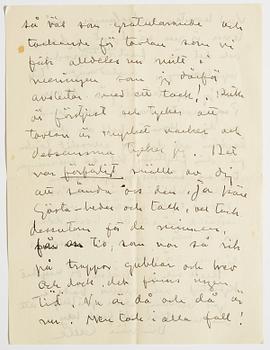 så väl som gratulerande och
tackande för tavlan som vi
fick alldeles nu mitt i
meningen som jag därför
avslutar med ett tack!
är förtjust och tycker att
tavlan är mycket vacker och
detsamma tycker jag. Det
var förfärligt snällt av dig
att sända oss den, ja kära
Gösta heder och tack, och tack
dessutom för de minnen,
från en tid, som var så rik
på trappor gubbar och brev
och dock, det finns ingen
tid. Nu är då och då är
nu. Men tack i alla fall!